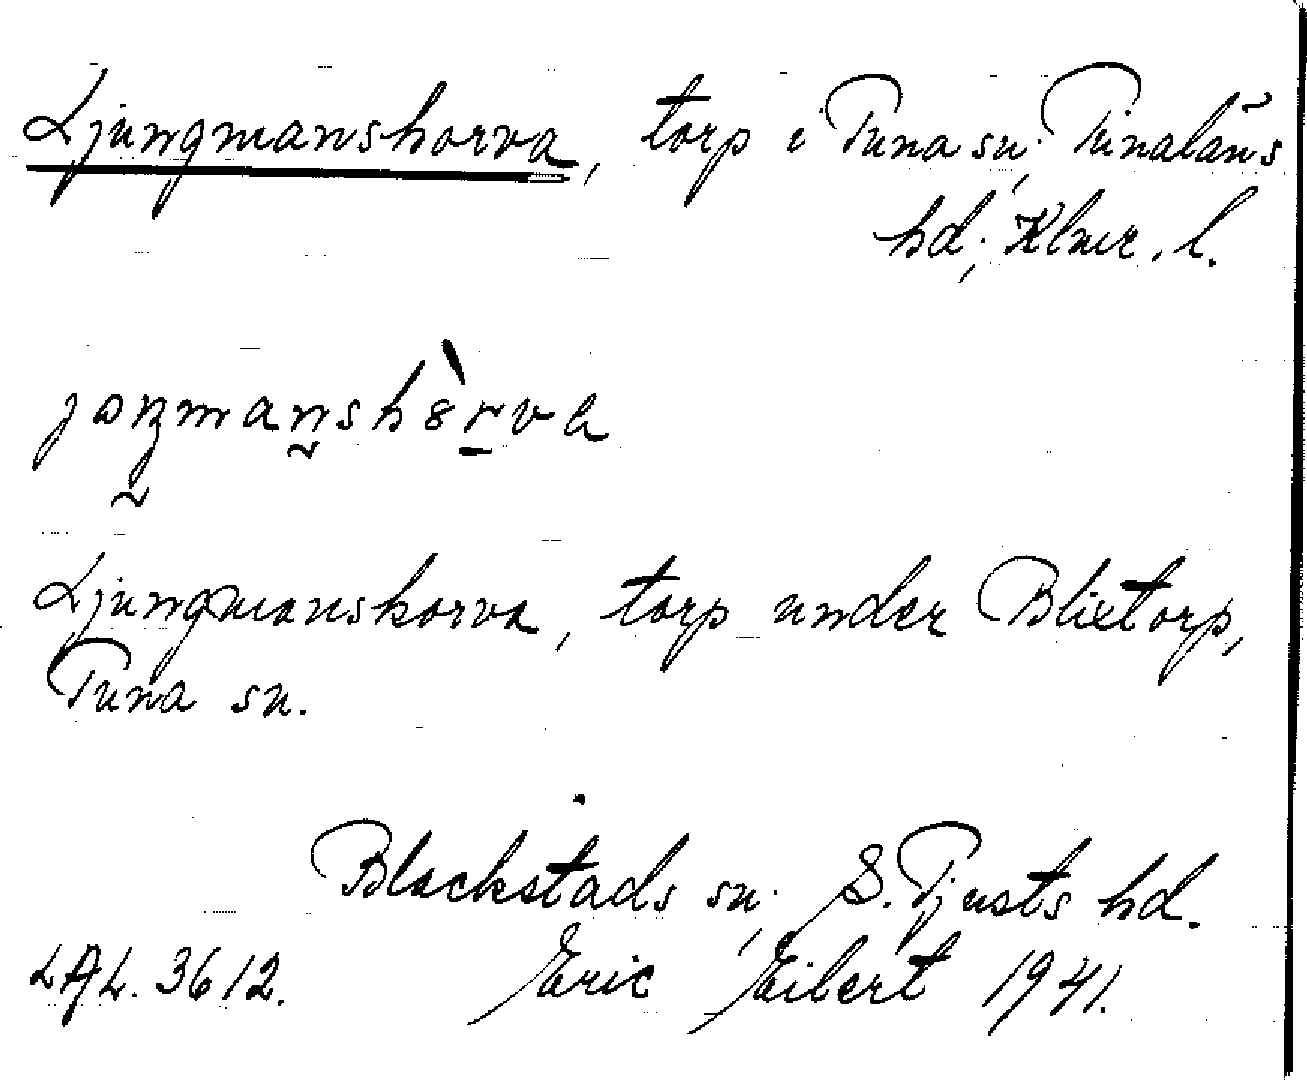 Ljungmanshorva, torp i Tuna sn., Tunaläns
hd., Klmr. l.
Ljungmanshorva, torp under Blixtorp,
Tuna sn.
Blackstads sn., S. Tjusts hd.
LAL. 3612. Eric Eibert 1941.